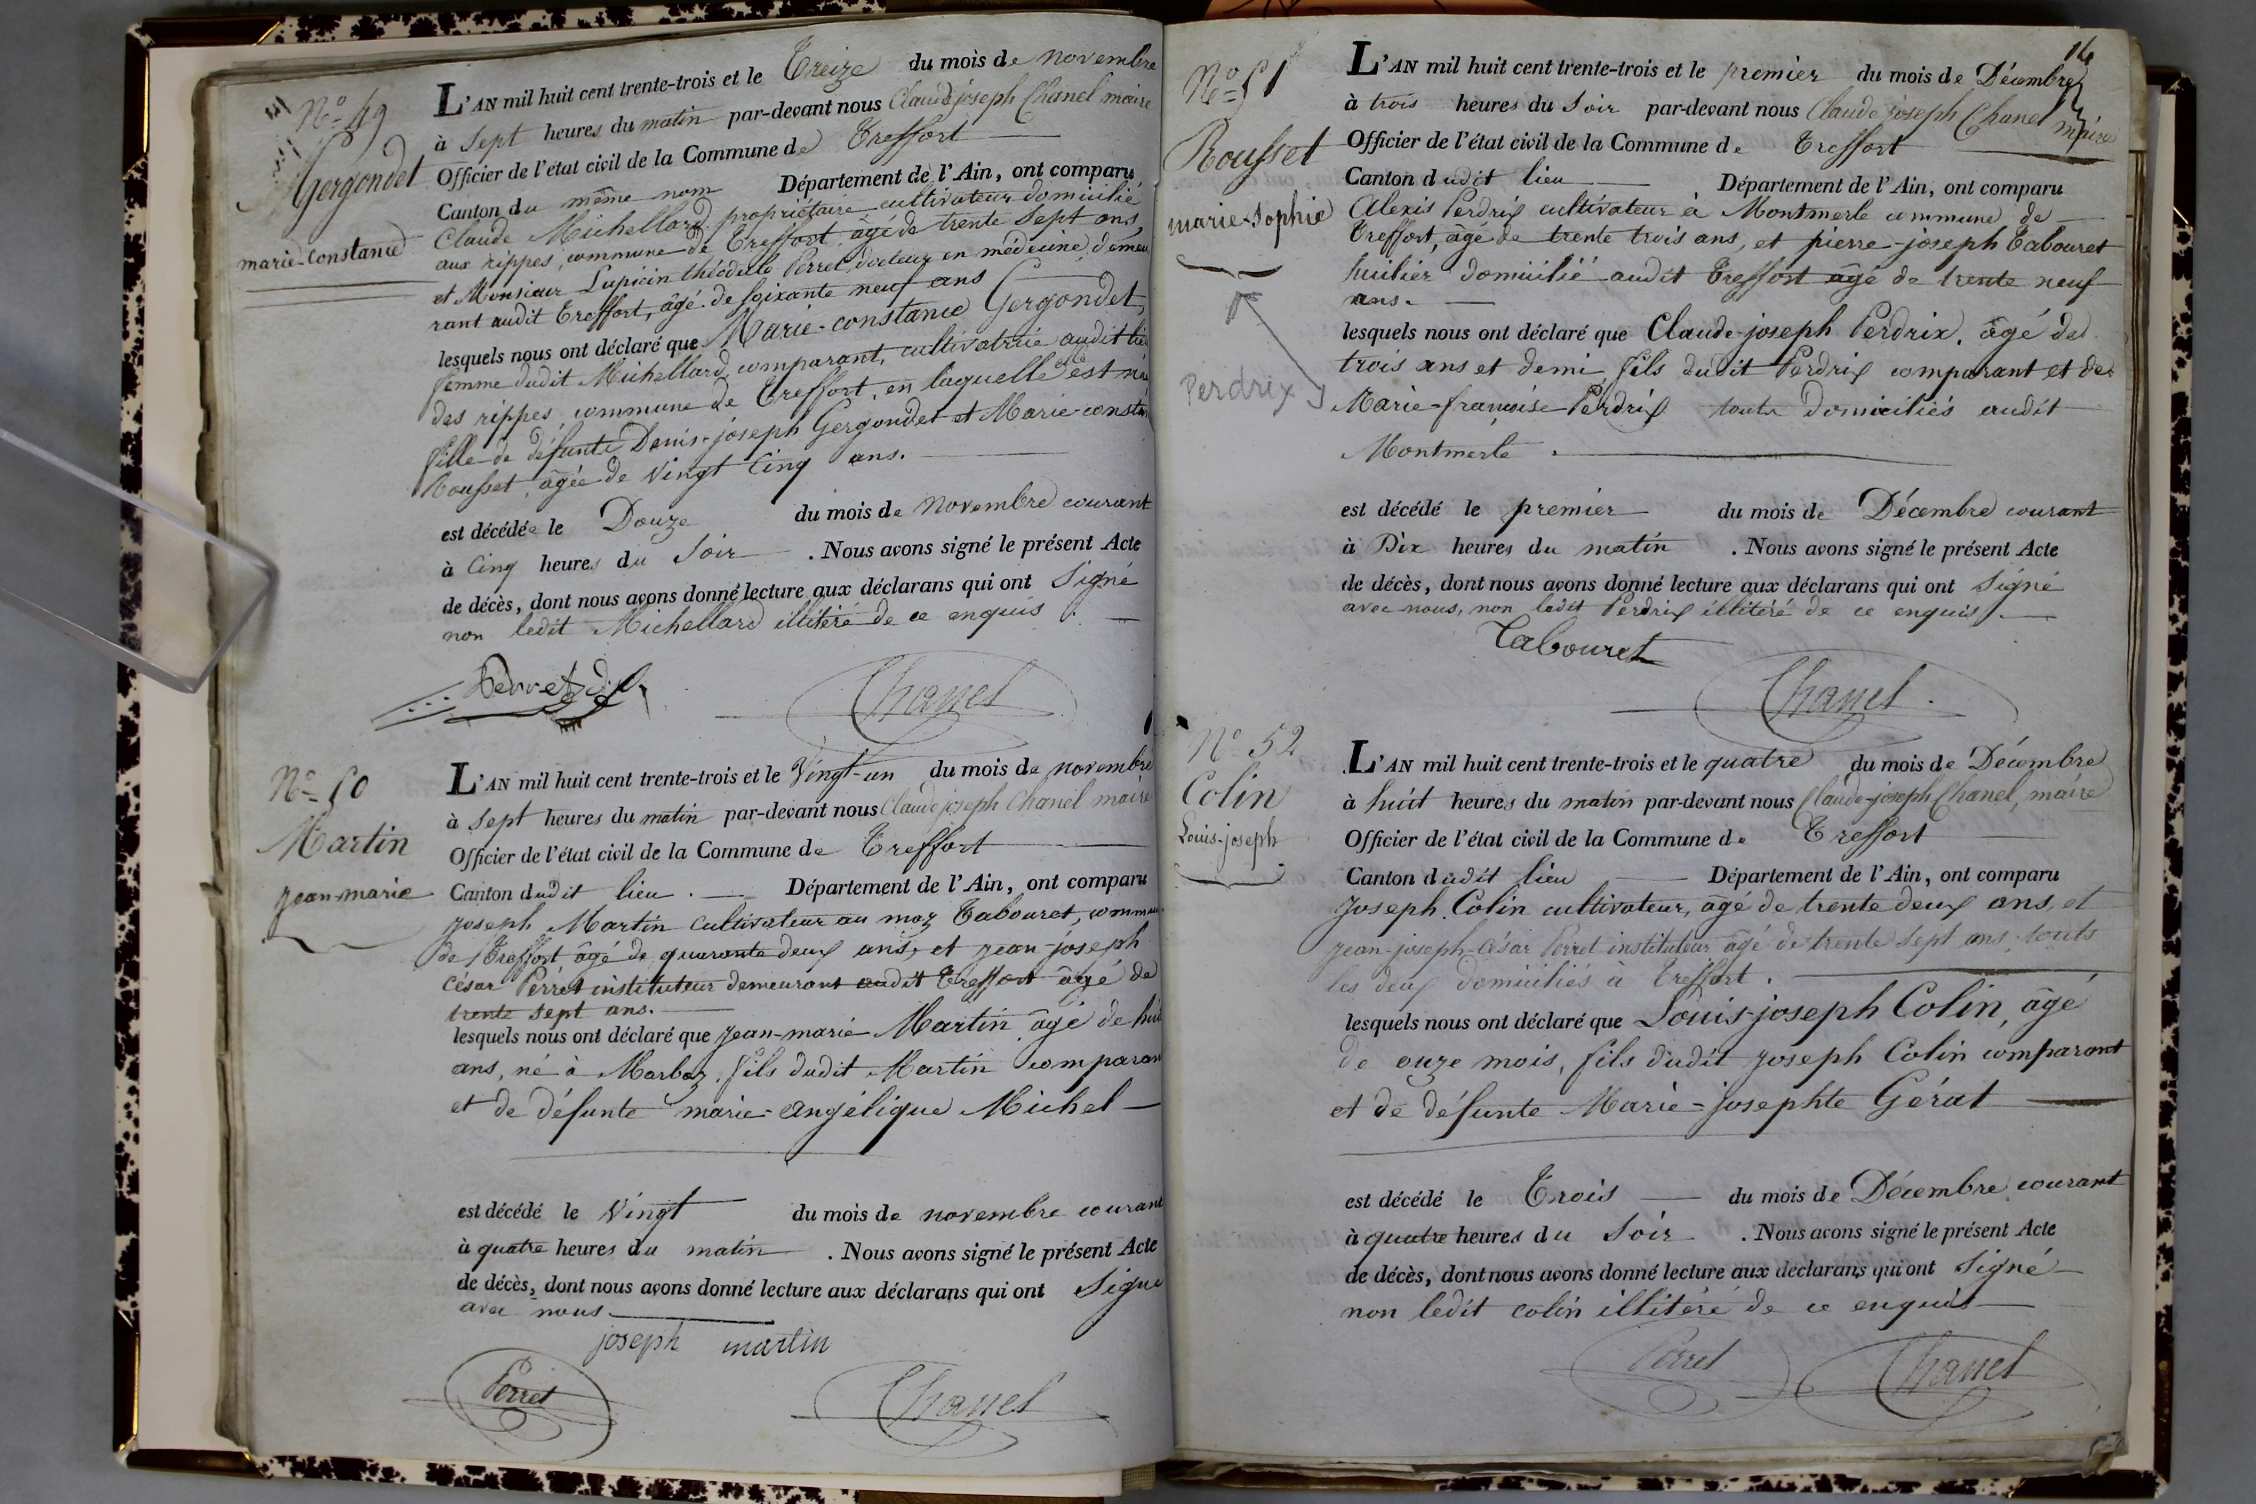 N° 49
Gergondet
marie-constance
L'AN mil huit cent trente-trois et le Treize du mois de novembre
à sept heures du matin par-devant nous Claude joseph Chanel maire
Officier de l'état civil de la Commune de Treffort
Canton du même nom Département de l'Ain, ont comparu
Claude Michellard propriétaire cultivateur domicilié
aux rippes, commune de Treffort, âgé de trente sept ans,
et Monsieur Lupicin théodule Perret, docteur en médecine, demeu
rant audit Treffort, âgé de soixante neuf ans
lesquels nous ont déclaré que Marie-constance Gergondet,
femme dudit Michellard, comparant, cultivatrice audit lieu
des rippes, commune de Treffort, en laquelle elle est née
fille de défunts Denis-joseph Gergondet et Marie-constance
Rousset, âgée de vingt Cinq ans.
est décédée le Douze du mois de novembre courant
à Cinq heures du soir . Nous avons signé le présent Acte
de décès, dont nous avons donné lecture aux déclarans qui ont signé
non ledit Michellard illitéré de ce enquis .
Perret
Chanel
N° 50
Martin
jean-marie
L'AN mil huit cent trente-trois et le Vingt-un du mois de novembre
à sept heures du matin par-devant nous Claude joseph Chanel maire
Officier de l'état civil de la Commune de Treffort
Canton dudit lieu . Département de l'Ain, ont comparu
joseph Martin cultivateur au maz Tabouret, commune
de Treffort âgé de quarante deux ans, et jean-joseph
César Perret instituteur demeurant audit Treffort âgé de
trente sept ans.
lesquels nous ont déclaré que jean-marie Martin âgé de huit
ans, né à Marboz, fils dudit Martin comparant
et de défunte marie-angélique Michel
est décédé le Vingt du mois de novembre courant
à quatre heures du matin . Nous avons signé le présent Acte
de décès, dont nous avons donné lecture aux déclarans qui ont signé
avec nous.
joseph martin
Perret
Chanel
16
N° 51
Rousset
marie-sophie
Perdrix
L'AN mil huit cent trente-trois et le premier du mois de Décembre
à trois heures du soir par-devant nous Claude joseph Chanel maire
Officier de l'état civil de la Commune de Treffort
Canton dudit lieu Département de l'Ain, ont comparu
Alexis Perdrix cultivateur à Montmerle commune de
Treffort, âgé de trente trois ans, et pierre-joseph Tabouret
huilier domicilié audit Treffort âgé de trente neuf
ans.
lesquels nous ont déclaré que Claude-joseph Perdrix, âgé de
trois ans et demi, fils dudit Perdrix comparant et de
Marie-françoise Perdrix touts domiciliés audit
Montmerle .
est décédé le premier du mois de Décembre courant
à Dix heures du matin . Nous avons signé le présent Acte
de décès, dont nous avons donné lecture aux déclarans qui ont signé
avec nous, non ledit Perdrix illitéré de ce enquis .
Tabouret
Chanel
N° 52
Colin
Louis-joseph
L'AN mil huit cent trente-trois et le quatre du mois de Décembre
à huit heures du matin par-devant nous Claude-joseph Chanel, maire
Officier de l'état civil de la Commune de Treffort
Canton dudit lieu Département de l'Ain, ont comparu
Joseph Colin cultivateur, âgé de trente deux ans, et
jean-joseph-César Perret instituteur âgé de trente sept ans touts
les deux domiciliés à Treffort .
lesquels nous ont déclaré que Louis-joseph Colin, âgé
de onze mois, fils dudit joseph Colin comparant
et de défunte Marie-josephte Gérat
est décédé le Trois du mois de Décembre courant
à quatre heures du soir . Nous avons signé le présent Acte
de décès, dont nous avons donné lecture aux déclarans qui ont signé
non ledit colin illitéré de ce enquis
Perret
Chanel